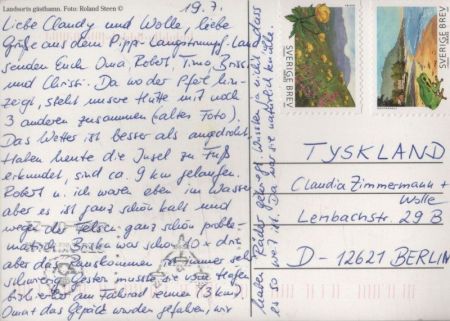 Landsorts gästhamn. Foto: Roland Steen ©
19.7.
Liebe Claudy und Wolle, liebe
Grüße aus dem Pippi-Langstrumpf-Land
senden Euch Oma, Robert, Timo, Briss
und Christi. Da wo der Pfeil hin-
zeigt, steht unsere Hütte mit noch
3 anderen zusammen (altes Foto).
Das Wetter ist besser als angedroht.
Haben heute die Insel zu Fuß
erkundet, sind ca. 9 km gelaufen.
Robert u. ich waren eben im Wasser
aber es ist ganz schön kalt und
wegen der Felsen ganz schön proble-
matisch. was schon 20 x drin
aber das Rauskommen ist immer sehr
schwierig. Gestern mussten sie vom Hafen
am Fahrrad rennen (3 km).
Oma + das Gepäck wurden gefahren, wir
haben Räder gekriegt. Wussten ja nicht, dass
es so weit ist.
SVERIGE BREV
SVERIGE BREV
TYSKLAND
Claudia Zimmermann +
Wolle
Lenbachstr. 29 B
D - 12621 BERLIN